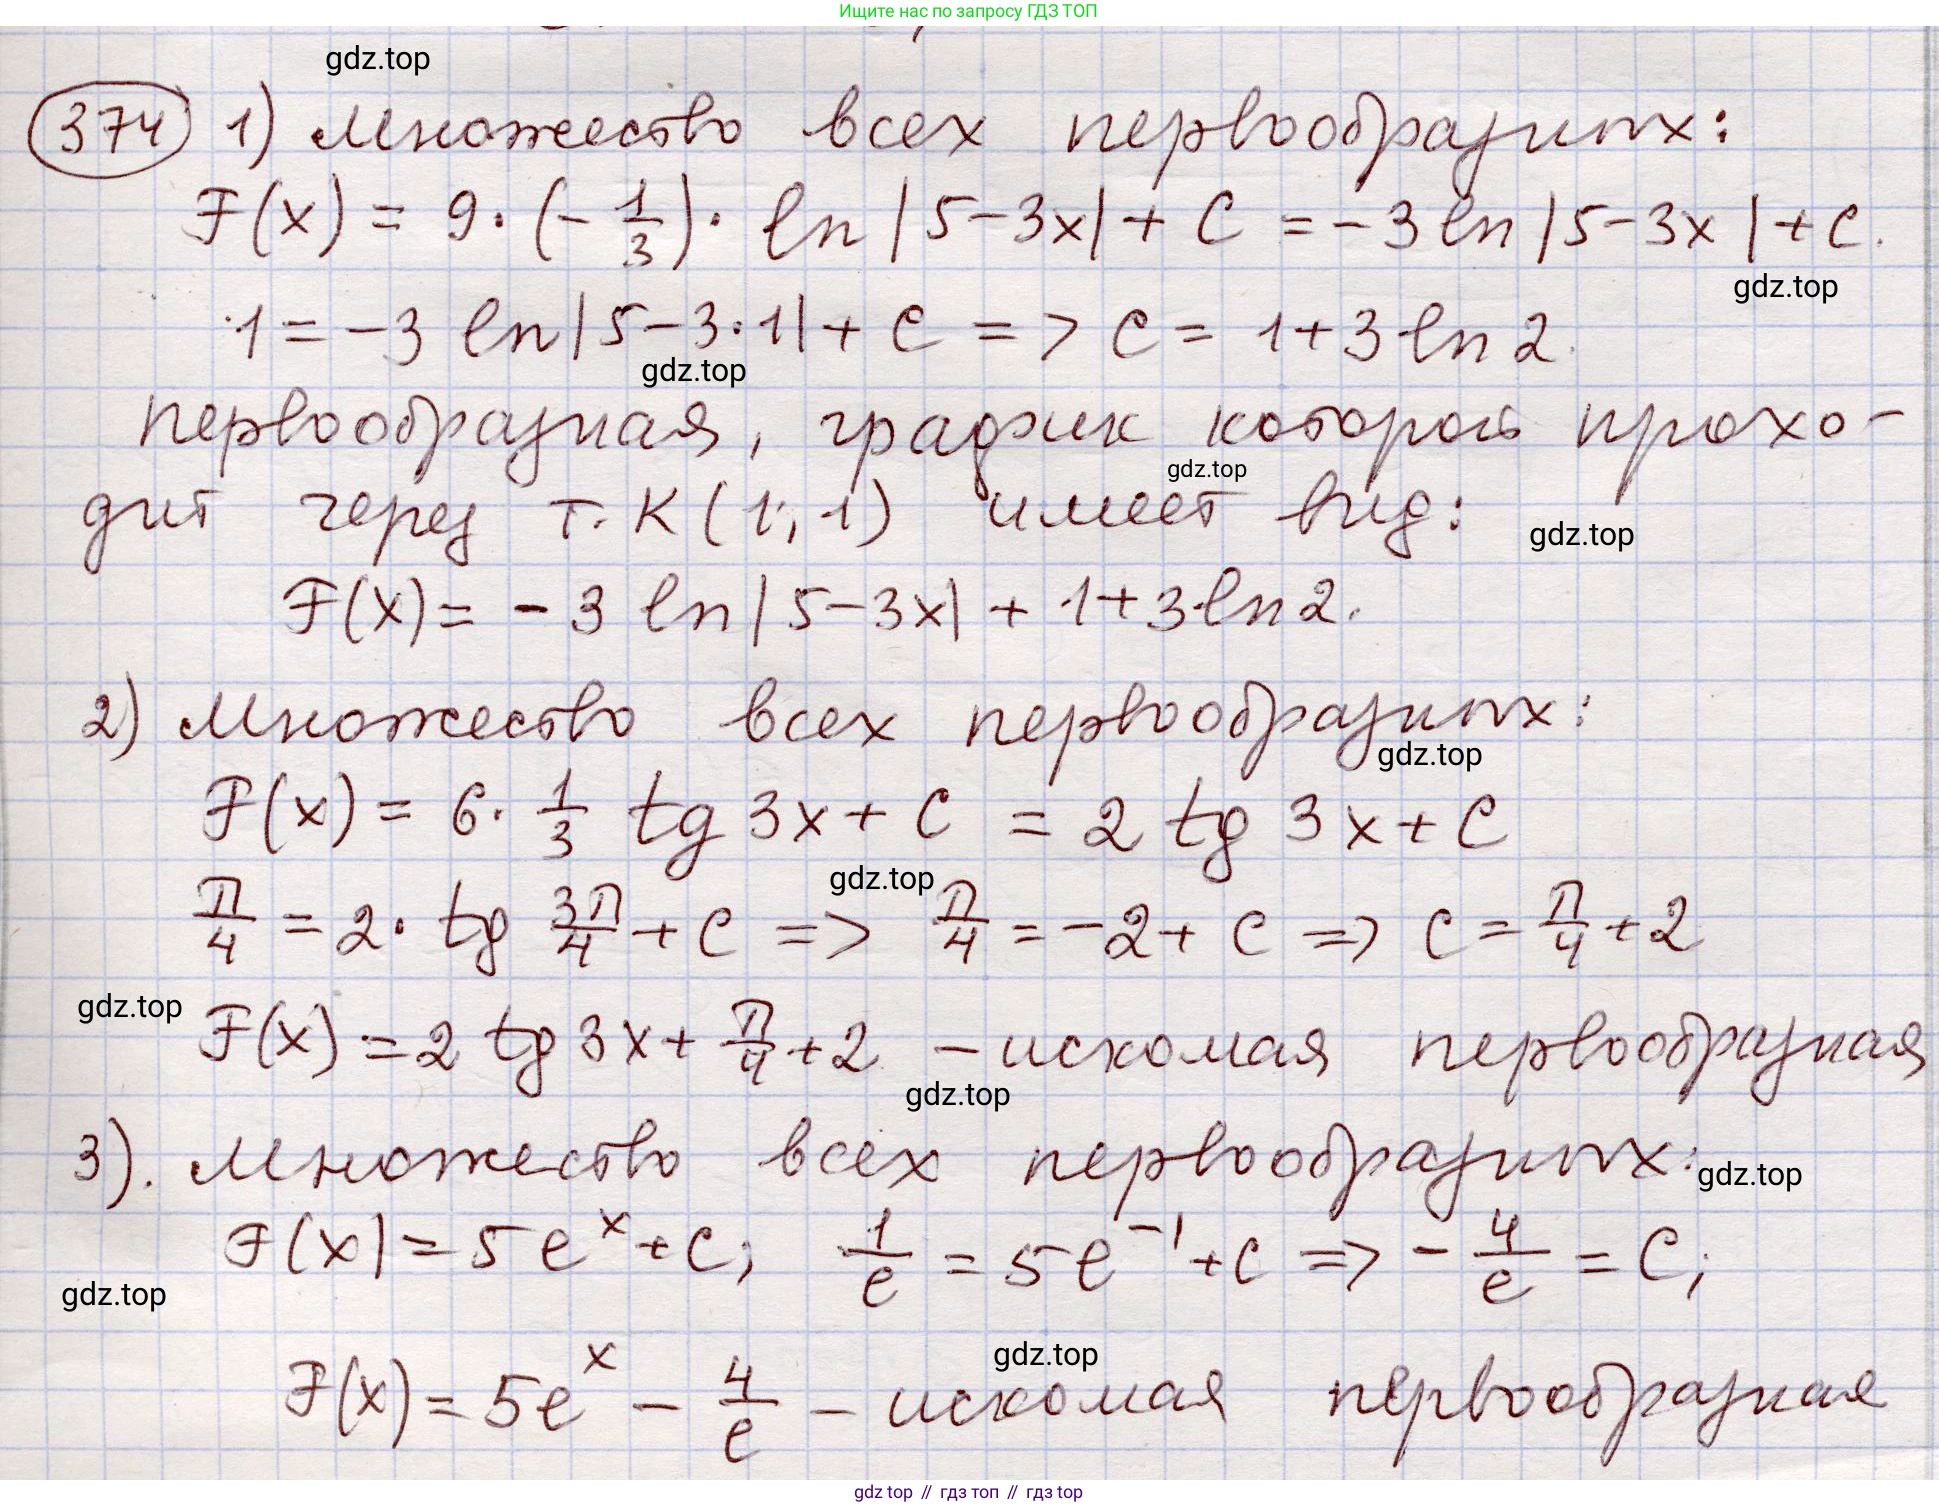 Ищите нас по запросу ГДЗ ТОП
gdz.top
374 1) множество всех первообразных:
F(x) = 9·(-1/3)· ln|5-3x| + C = -3ln|5-3x|+C.
gdz.top
1 = -3 ln|5-3·1|+C => C = 1+3ln2.
gdz.top
первообразная, график которой прохо-
gdz.top
дит через т. K(1; 1) имеет вид:
gdz.top
F(x) = -3 ln|5-3x| + 1+3ln2.
2) множество всех первообразных:
gdz.top
F(x) = 6·1/3 tg 3x + C = 2 tg 3x + C
gdz.top
π/4 = 2· tg 3π/4 + C => π/4 = -2 + C => C = π/4 + 2
gdz.top
F(x) = 2 tg 3x + π/4 + 2 - искомая первообразная
gdz.top
3). множество всех первообразных:
gdz.top
F(x) = 5e^x + C; 1/e = 5e^-1 + C => -4/e = C;
gdz.top
gdz.top
F(x) = 5e^x - 4/e - искомая первообразная
gdz top // гдз топ // гдз top